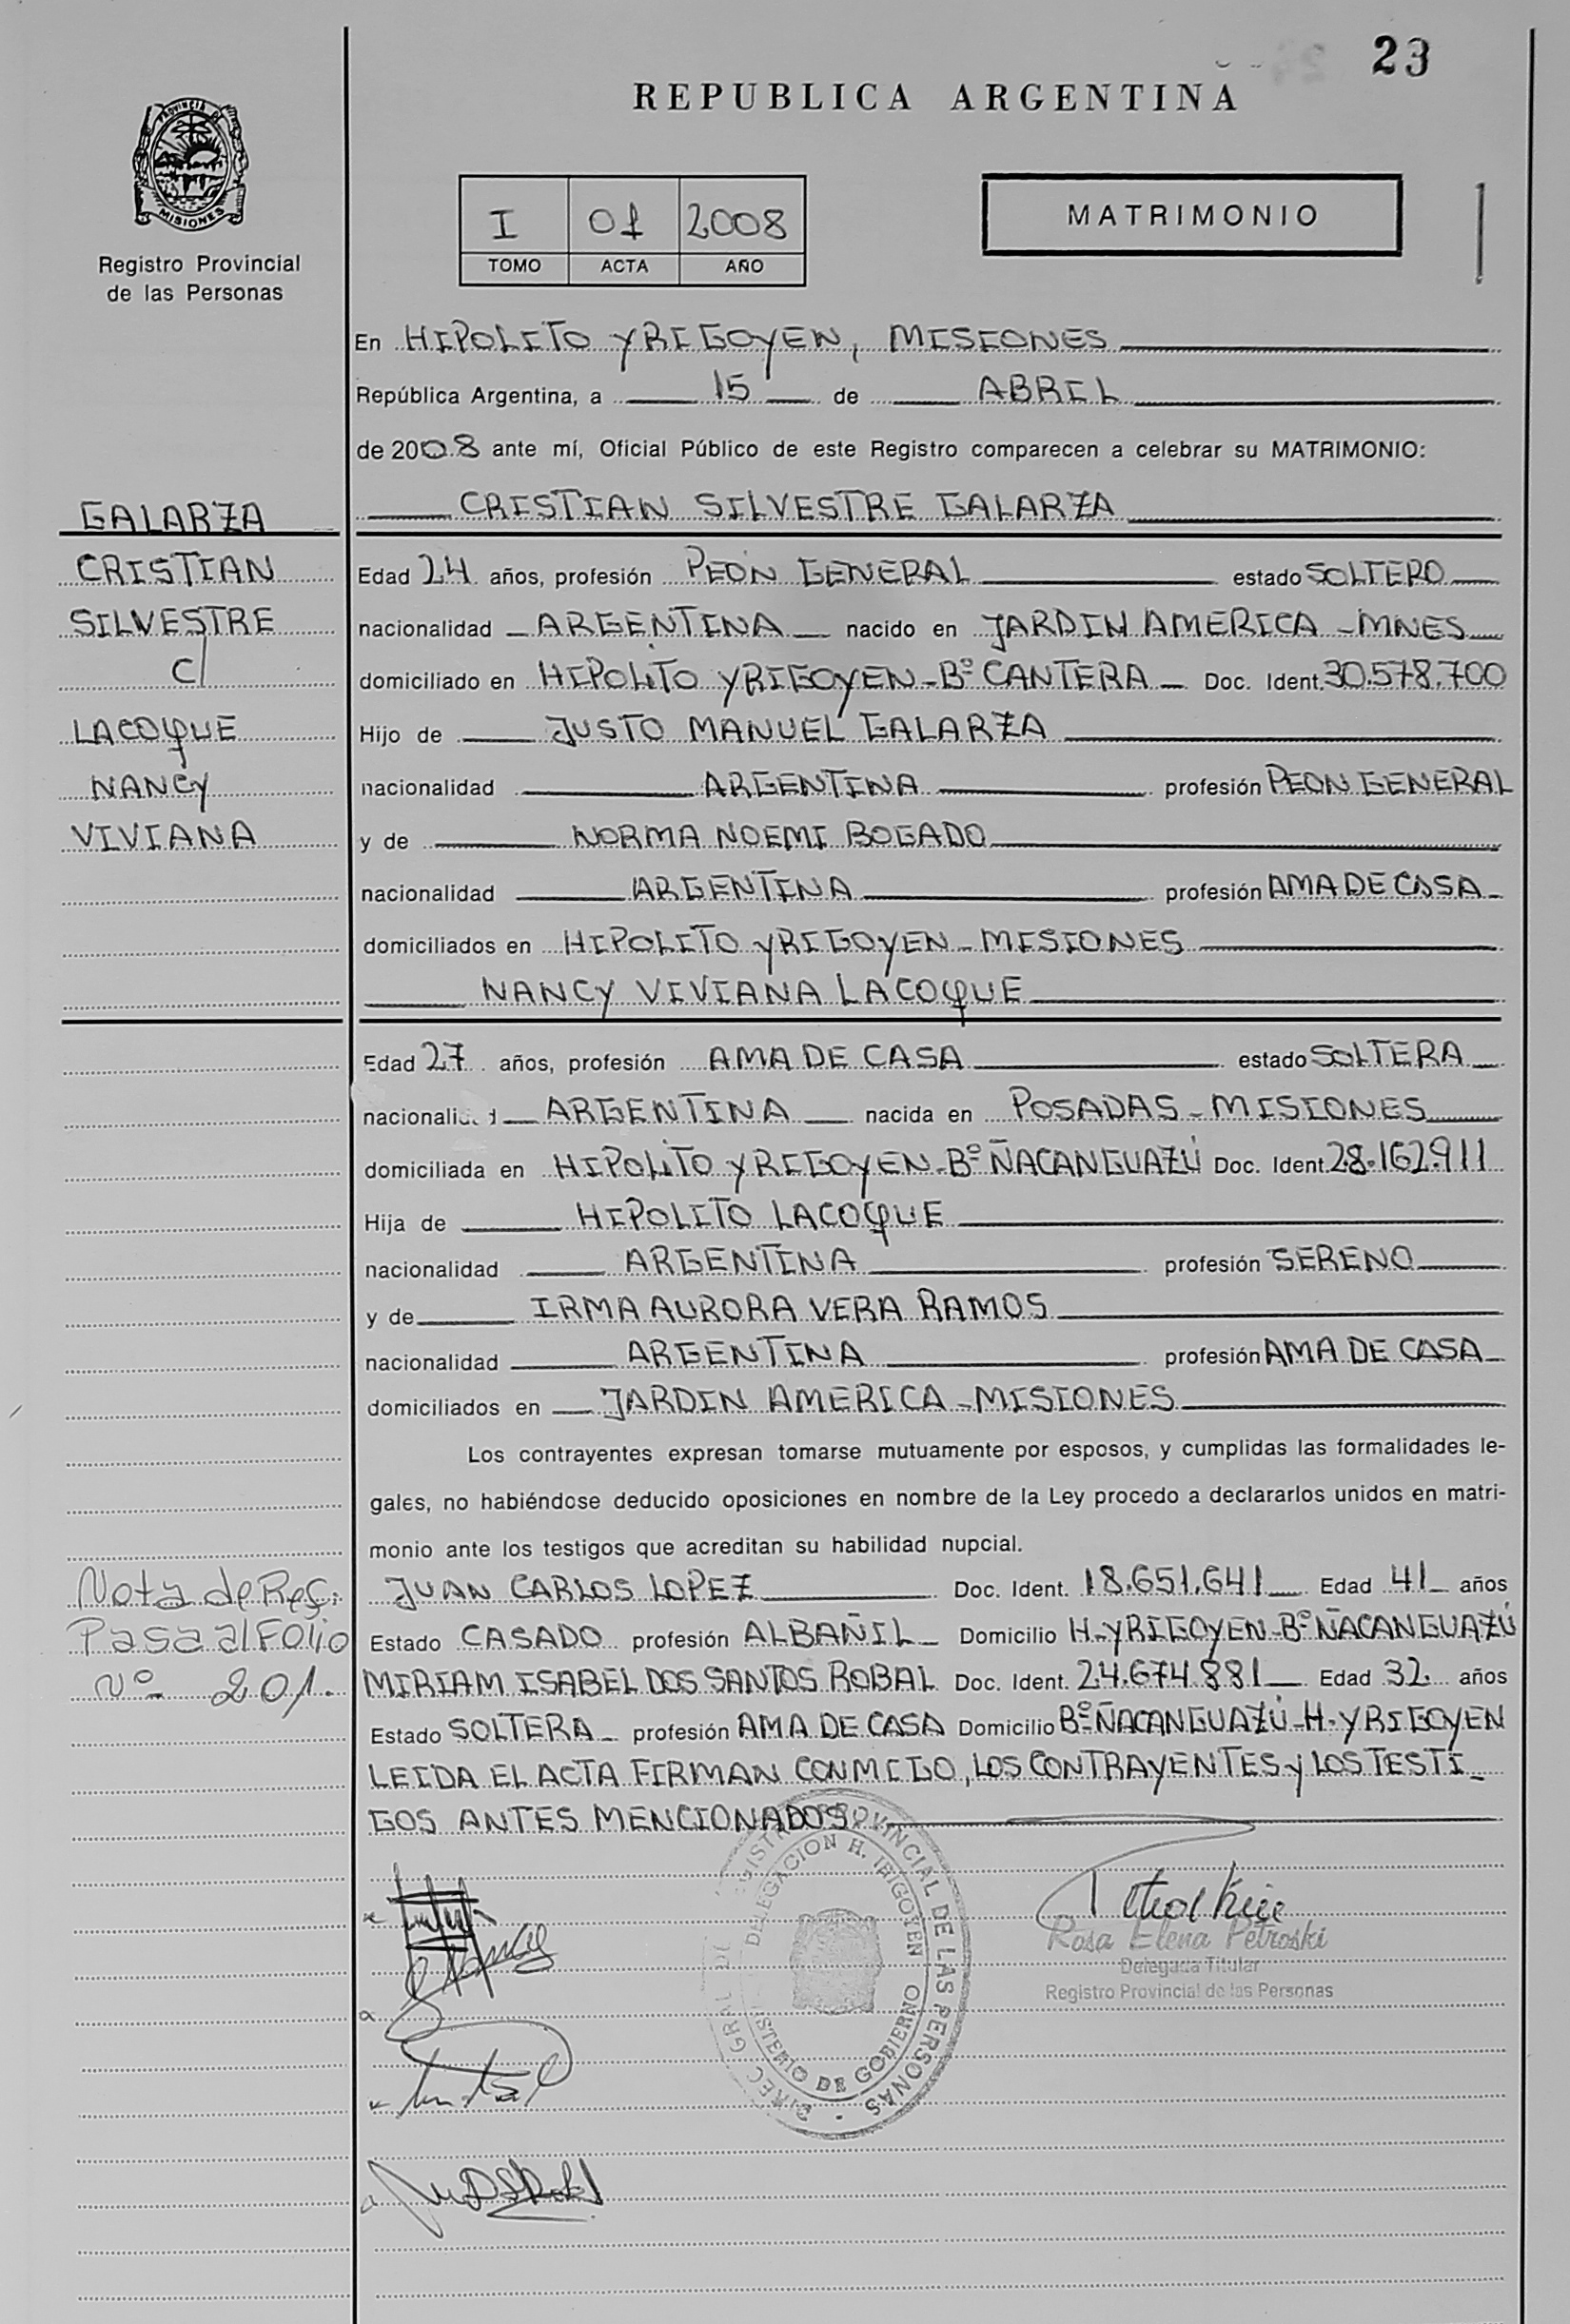 23
REPUBLICA ARGENTINA
PROVINCIA DE
MISIONES
Registro Provincial
de las Personas
I 01 2008
TOMO ACTA AÑO
MATRIMONIO
En HIPOLITO YRIGOYEN, MISIONES
República Argentina, a 15 de ABRIL
de 2008 ante mí, Oficial Público de este Registro comparecen a celebrar su MATRIMONIO:
GALARZA
CRISTIAN
SILVESTRE
c/
LACOQUE
NANCY
VIVIANA
CRISTIAN SILVESTRE GALARZA
Edad 24 años, profesión PEON GENERAL estado SOLTERO
nacionalidad ARGENTINA nacido en JARDIN AMERICA - MNES
domiciliado en HIPOLITO YRIGOYEN - Bº CANTERA - Doc. Ident. 30.578.700
Hijo de JUSTO MANUEL GALARZA
nacionalidad ARGENTINA profesión PEON GENERAL
y de NORMA NOEMI BOGADO
nacionalidad ARGENTINA profesión AMA DE CASA
domiciliados en HIPOLITO YRIGOYEN - MISIONES
NANCY VIVIANA LACOQUE
Edad 27 años, profesión AMA DE CASA estado SOLTERA
nacionalidad ARGENTINA nacida en POSADAS - MISIONES
domiciliada en HIPOLITO YRIGOYEN - Bº ÑACANGUAZÚ Doc. Ident. 28.162.911
Hija de HIPOLITO LACOQUE
nacionalidad ARGENTINA profesión SERENO
y de IRMA AURORA VERA RAMOS
nacionalidad ARGENTINA profesión AMA DE CASA
domiciliados en JARDIN AMERICA - MISIONES
Los contrayentes expresan tomarse mutuamente por esposos, y cumplidas las formalidades le-
gales, no habiéndose deducido oposiciones en nombre de la Ley procedo a declararlos unidos en matri-
monio ante los testigos que acreditan su habilidad nupcial.
Nota de Reg:
Pasa al Folio
Nº 201.
JUAN CARLOS LOPEZ Doc. Ident. 18.651.641 Edad 41 años
Estado CASADO profesión ALBAÑIL Domicilio H. YRIGOYEN - Bº ÑACANGUAZÚ
MIRIAM ISABEL DOS SANTOS ROBAL Doc. Ident. 24.674.881 Edad 32 años
Estado SOLTERA profesión AMA DE CASA Domicilio Bº ÑACANGUAZÚ - H. YRIGOYEN
LEIDA EL ACTA FIRMAN CONMIGO, LOS CONTRAYENTES Y LOS TESTI-
GOS ANTES MENCIONADOS.
PROVINCIAL DE LAS PERSONAS
DELEGACION H. IRIGOYEN
DE GOBIERNO
Rosa Elena Petroski
Delegada Titular
Registro Provincial de las Personas